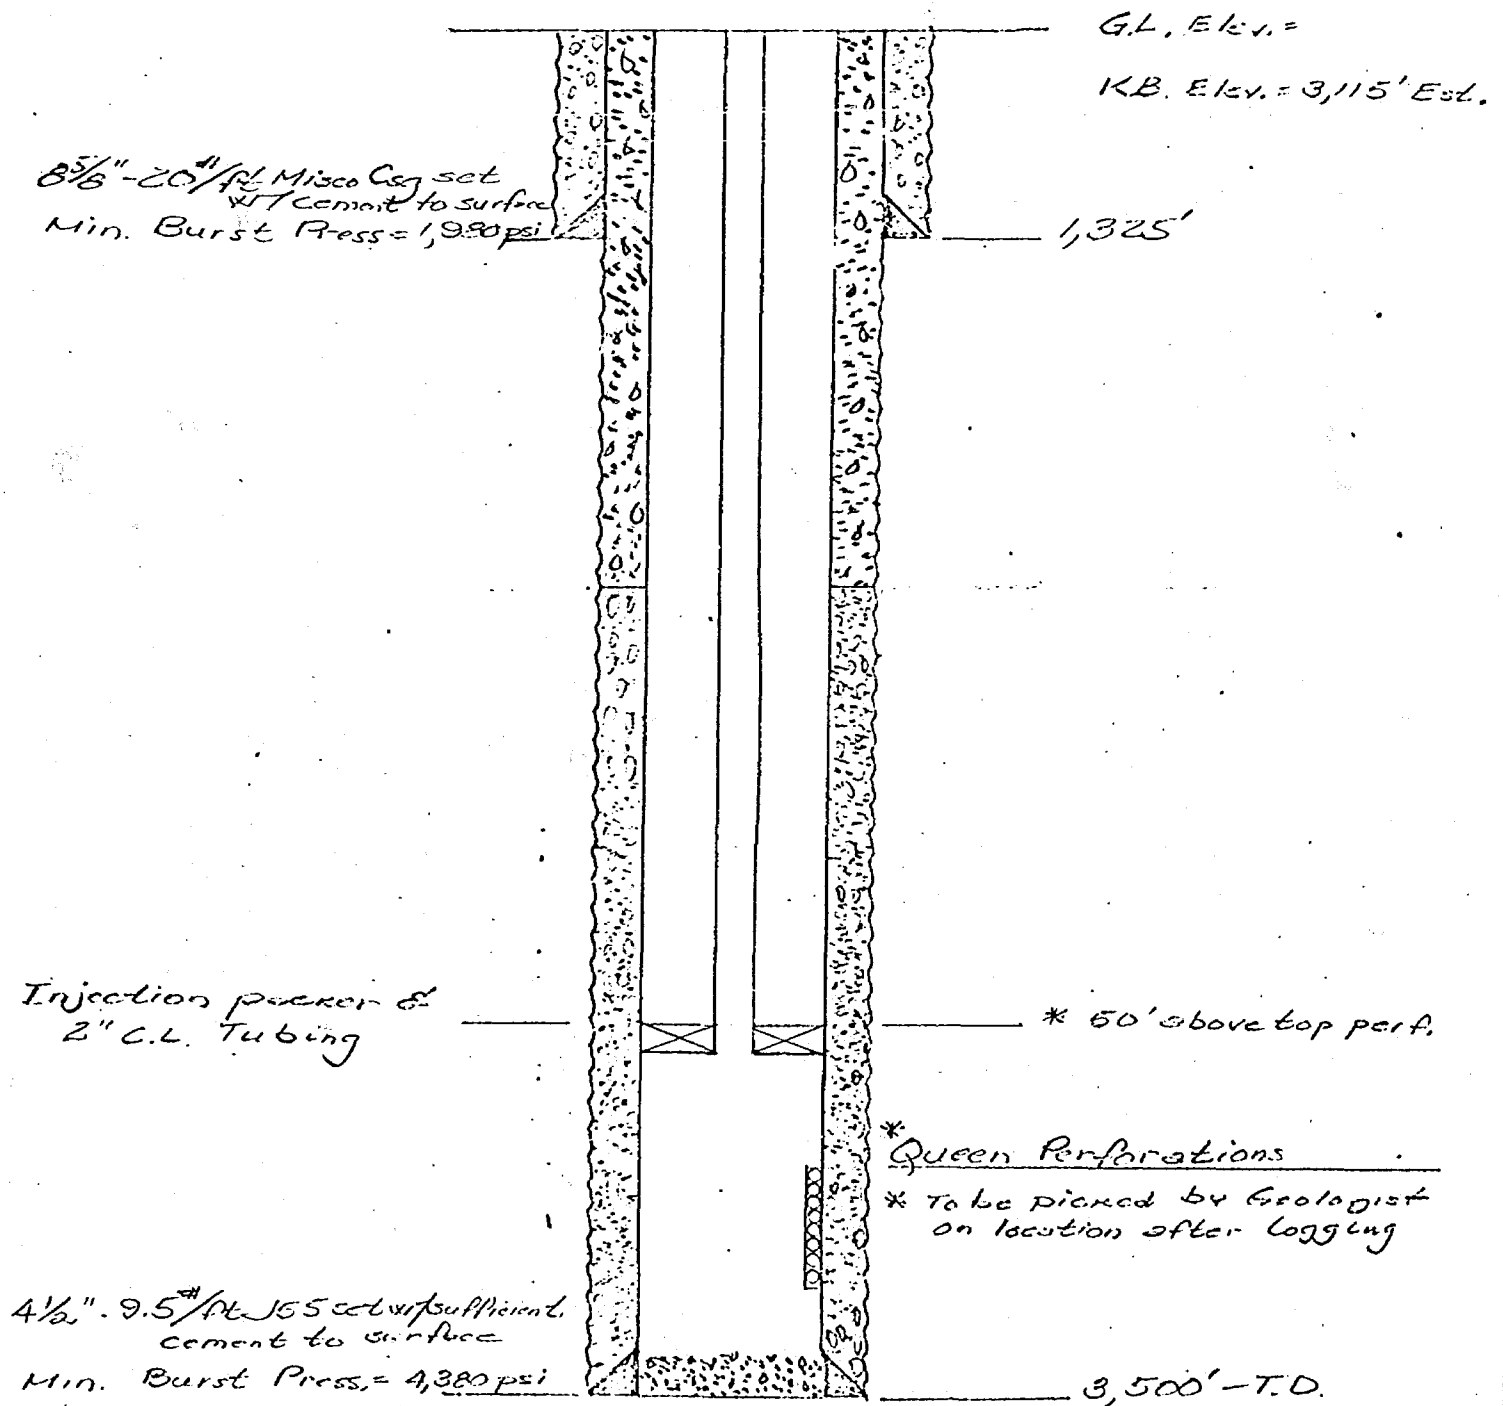 G.L. Elev. =
K.B. Elev. = 3,115' Est.
8 5/8" - 20#/ft Misco Csg set
w/ cement to surface
Min. Burst Press = 1,980 psi
1,325'
Injection packer &
2" C.L. Tubing
* 50' above top perf.
*
Queen Perforations
* To be picked by Geologist
on location after logging
4 1/2" - 9.5#/ft J55 set w/ sufficient
cement to surface
Min. Burst Press. = 4,380 psi
3,500' - T.D.